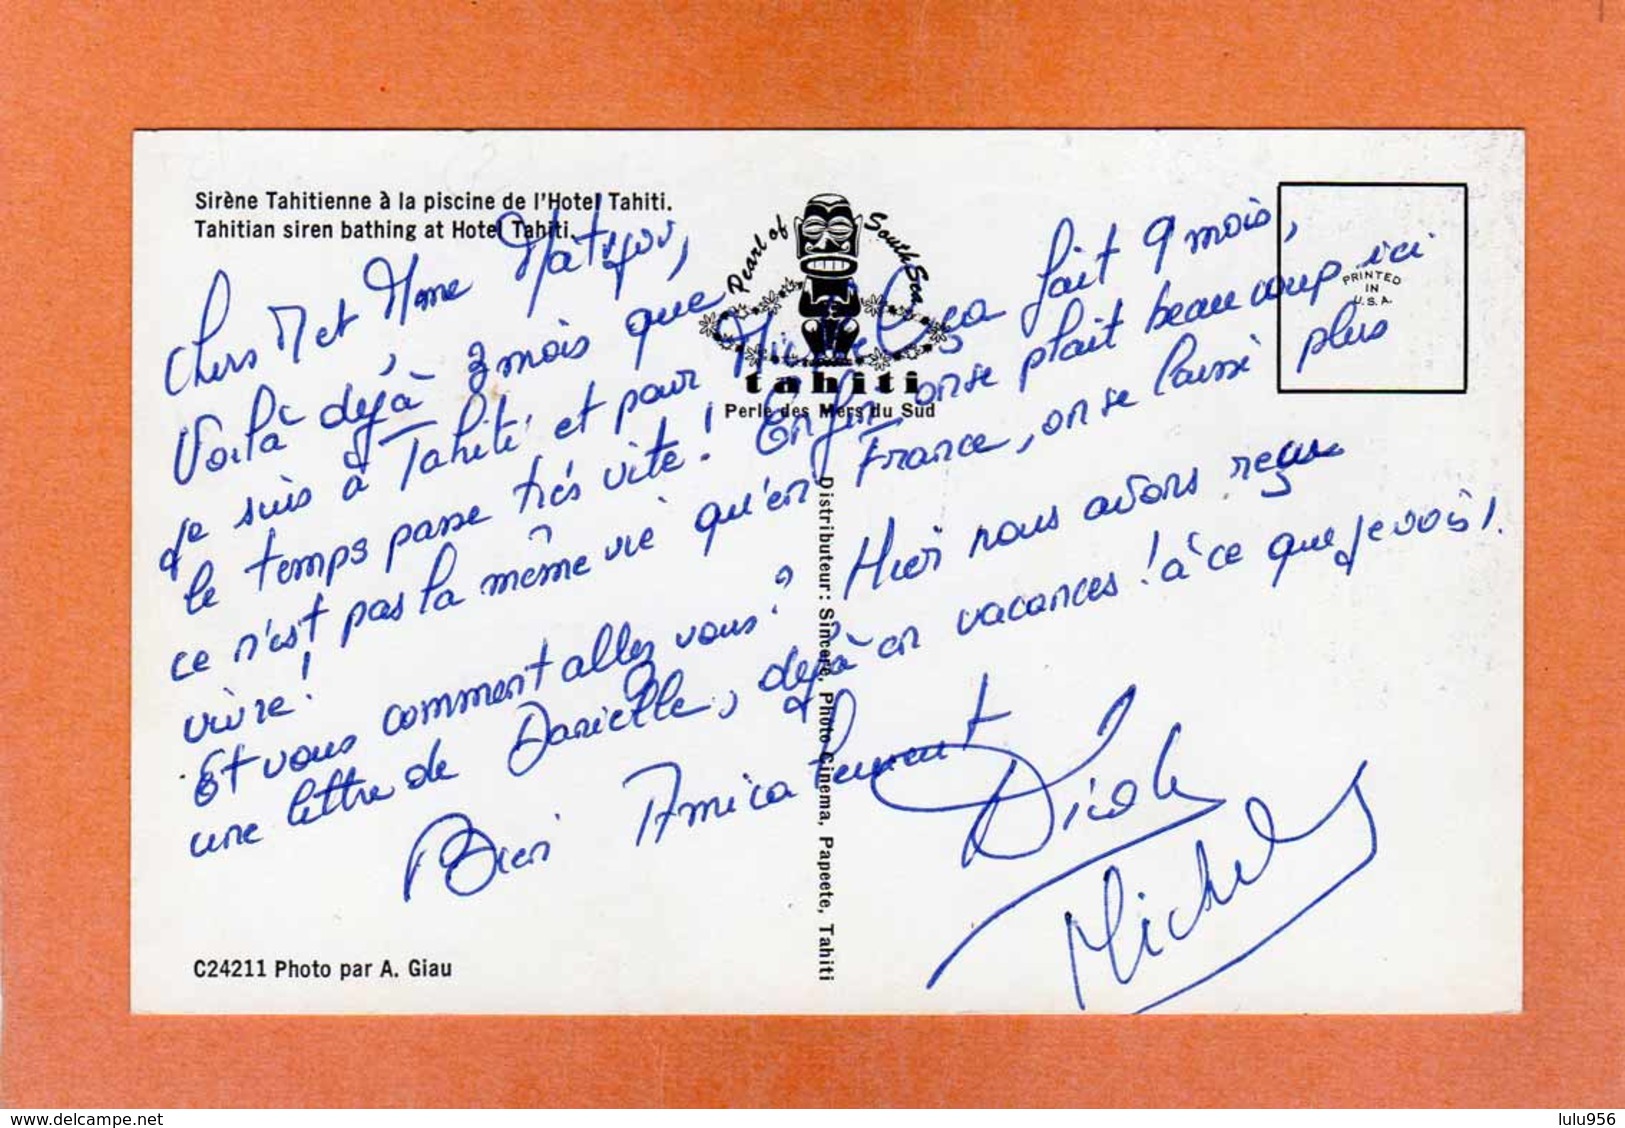 Sirène Tahitienne à la piscine de l'Hotel Tahiti.
Tahitian siren bathing at Hotel Tahiti.
Pearl of South Sea
tahiti
Perle des Mers du Sud
PRINTED
IN
U.S.A.
Chers M et Mme
Voilà déjà 3 mois que
je suis à Tahiti et pour Michel ça fait 9 mois,
le temps passe très vite! Enfin, on se plait beaucoup ici
ce n'est pas la même vie qu'en France, on se laisse plus
vivre!
Et vous comment allez vous? Hier nous avons reçu
une lettre de Danielle, déjà en vacances! à ce que je vois!.
Bien Amicalement
Michel
Distributeur: Sincere, Photo-Cinema, Papeete, Tahiti
C24211 Photo par A. Giau
delcampe.net
lulu956